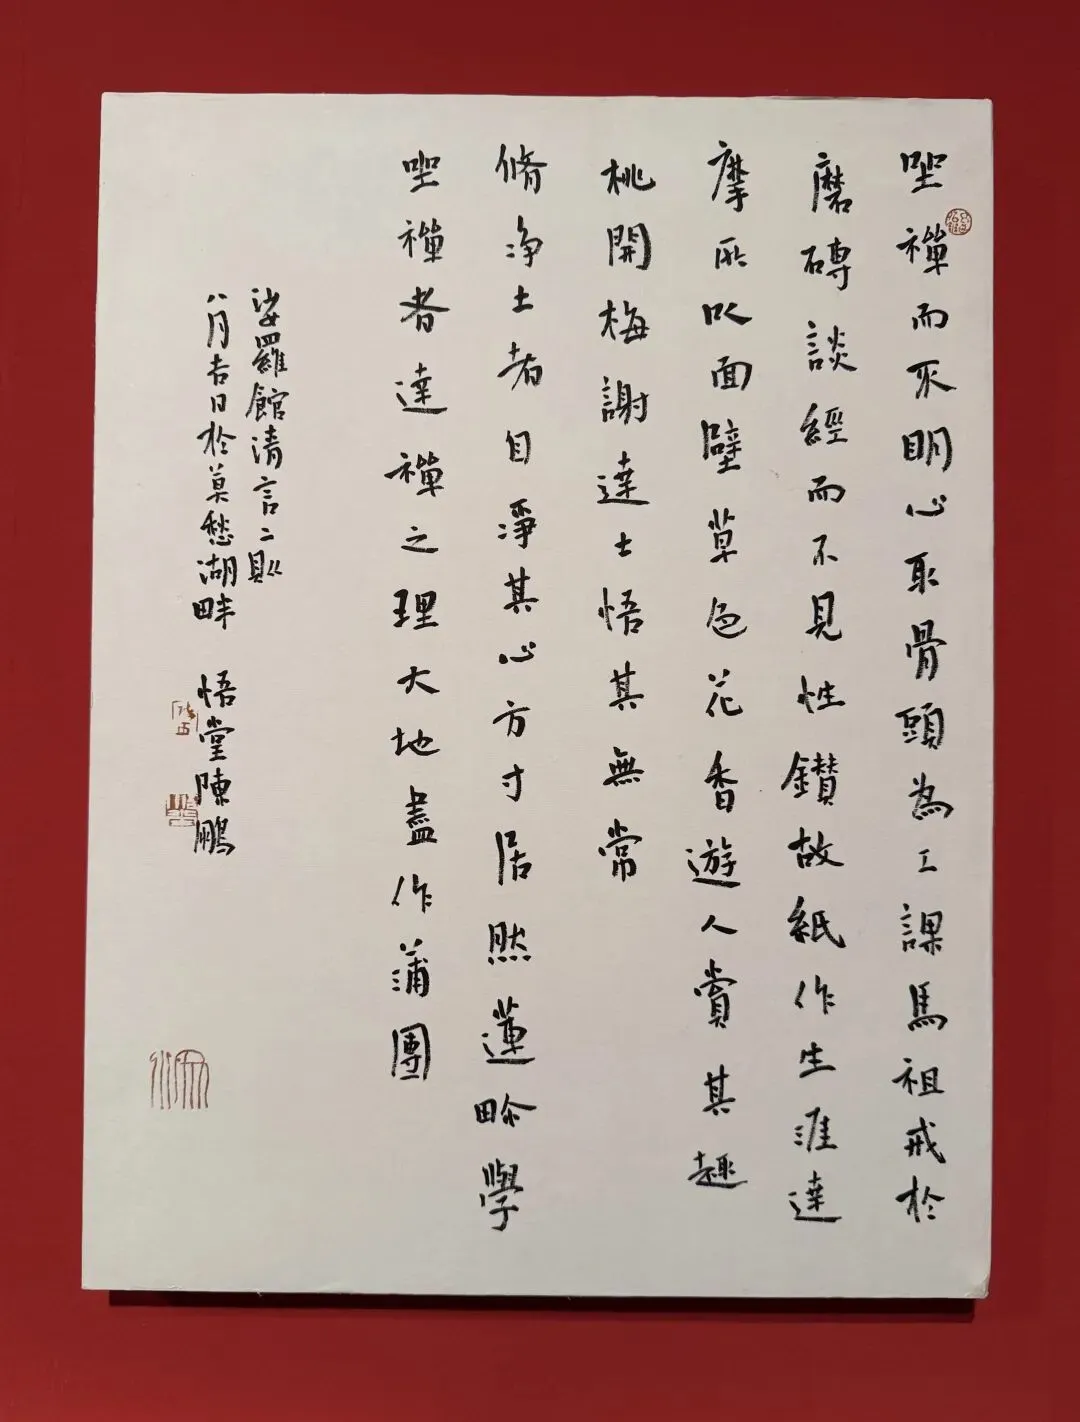 坐禪而不明心取骨頭為工課馬祖戒於
磨磚談經而不見性鑽故紙作生涯達
摩所以面壁草色花香遊人賞其趣
桃開梅謝達士悟其無常
脩浄土者自淨其心方寸居然蓮畛學
坐禪者達禪之理大地盡作蒲團
娑羅館清言二則
八月吉日於莫愁湖畔 悟堂陳鵬